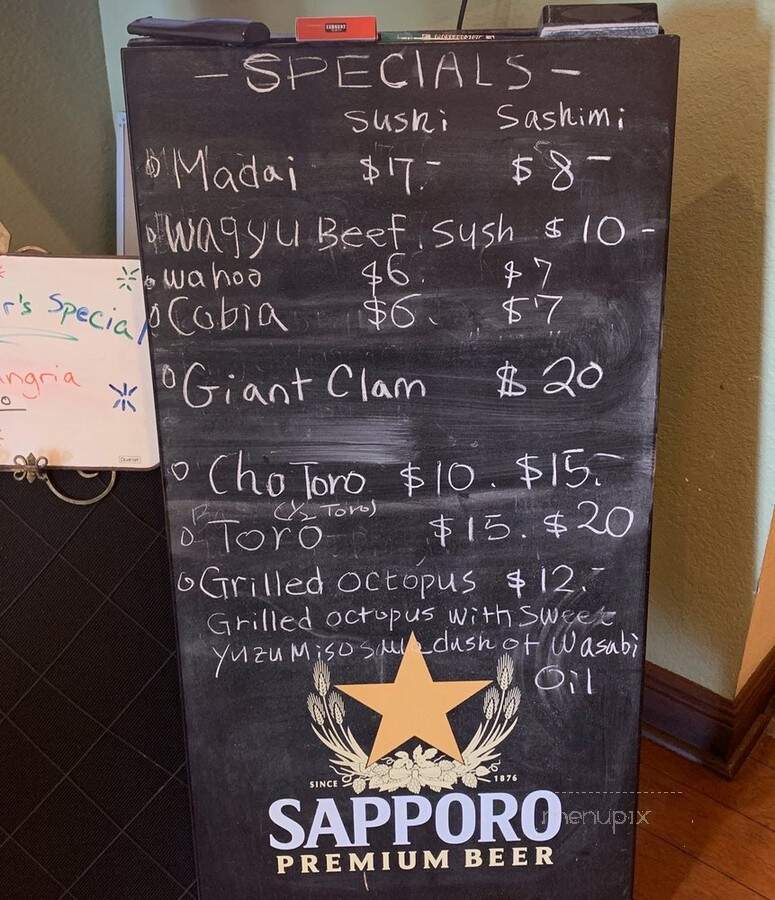 - SPECIALS -
Sushi Sashimi
Madai $17.- $8-
Wagyu Beef. Sush $10-
wahoo $6. $7
Cobia $6. $7
Giant Clam $20
Cho Toro $10. $15.-
(1/2 Toro)
Toro $15. $20
Grilled octopus $12.-
Grilled octopus with Sweet
yuzu Miso dash of Wasabi
Oil
SINCE 1876
SAPPORO
PREMIUM BEER
r's Special
ngria
menupix